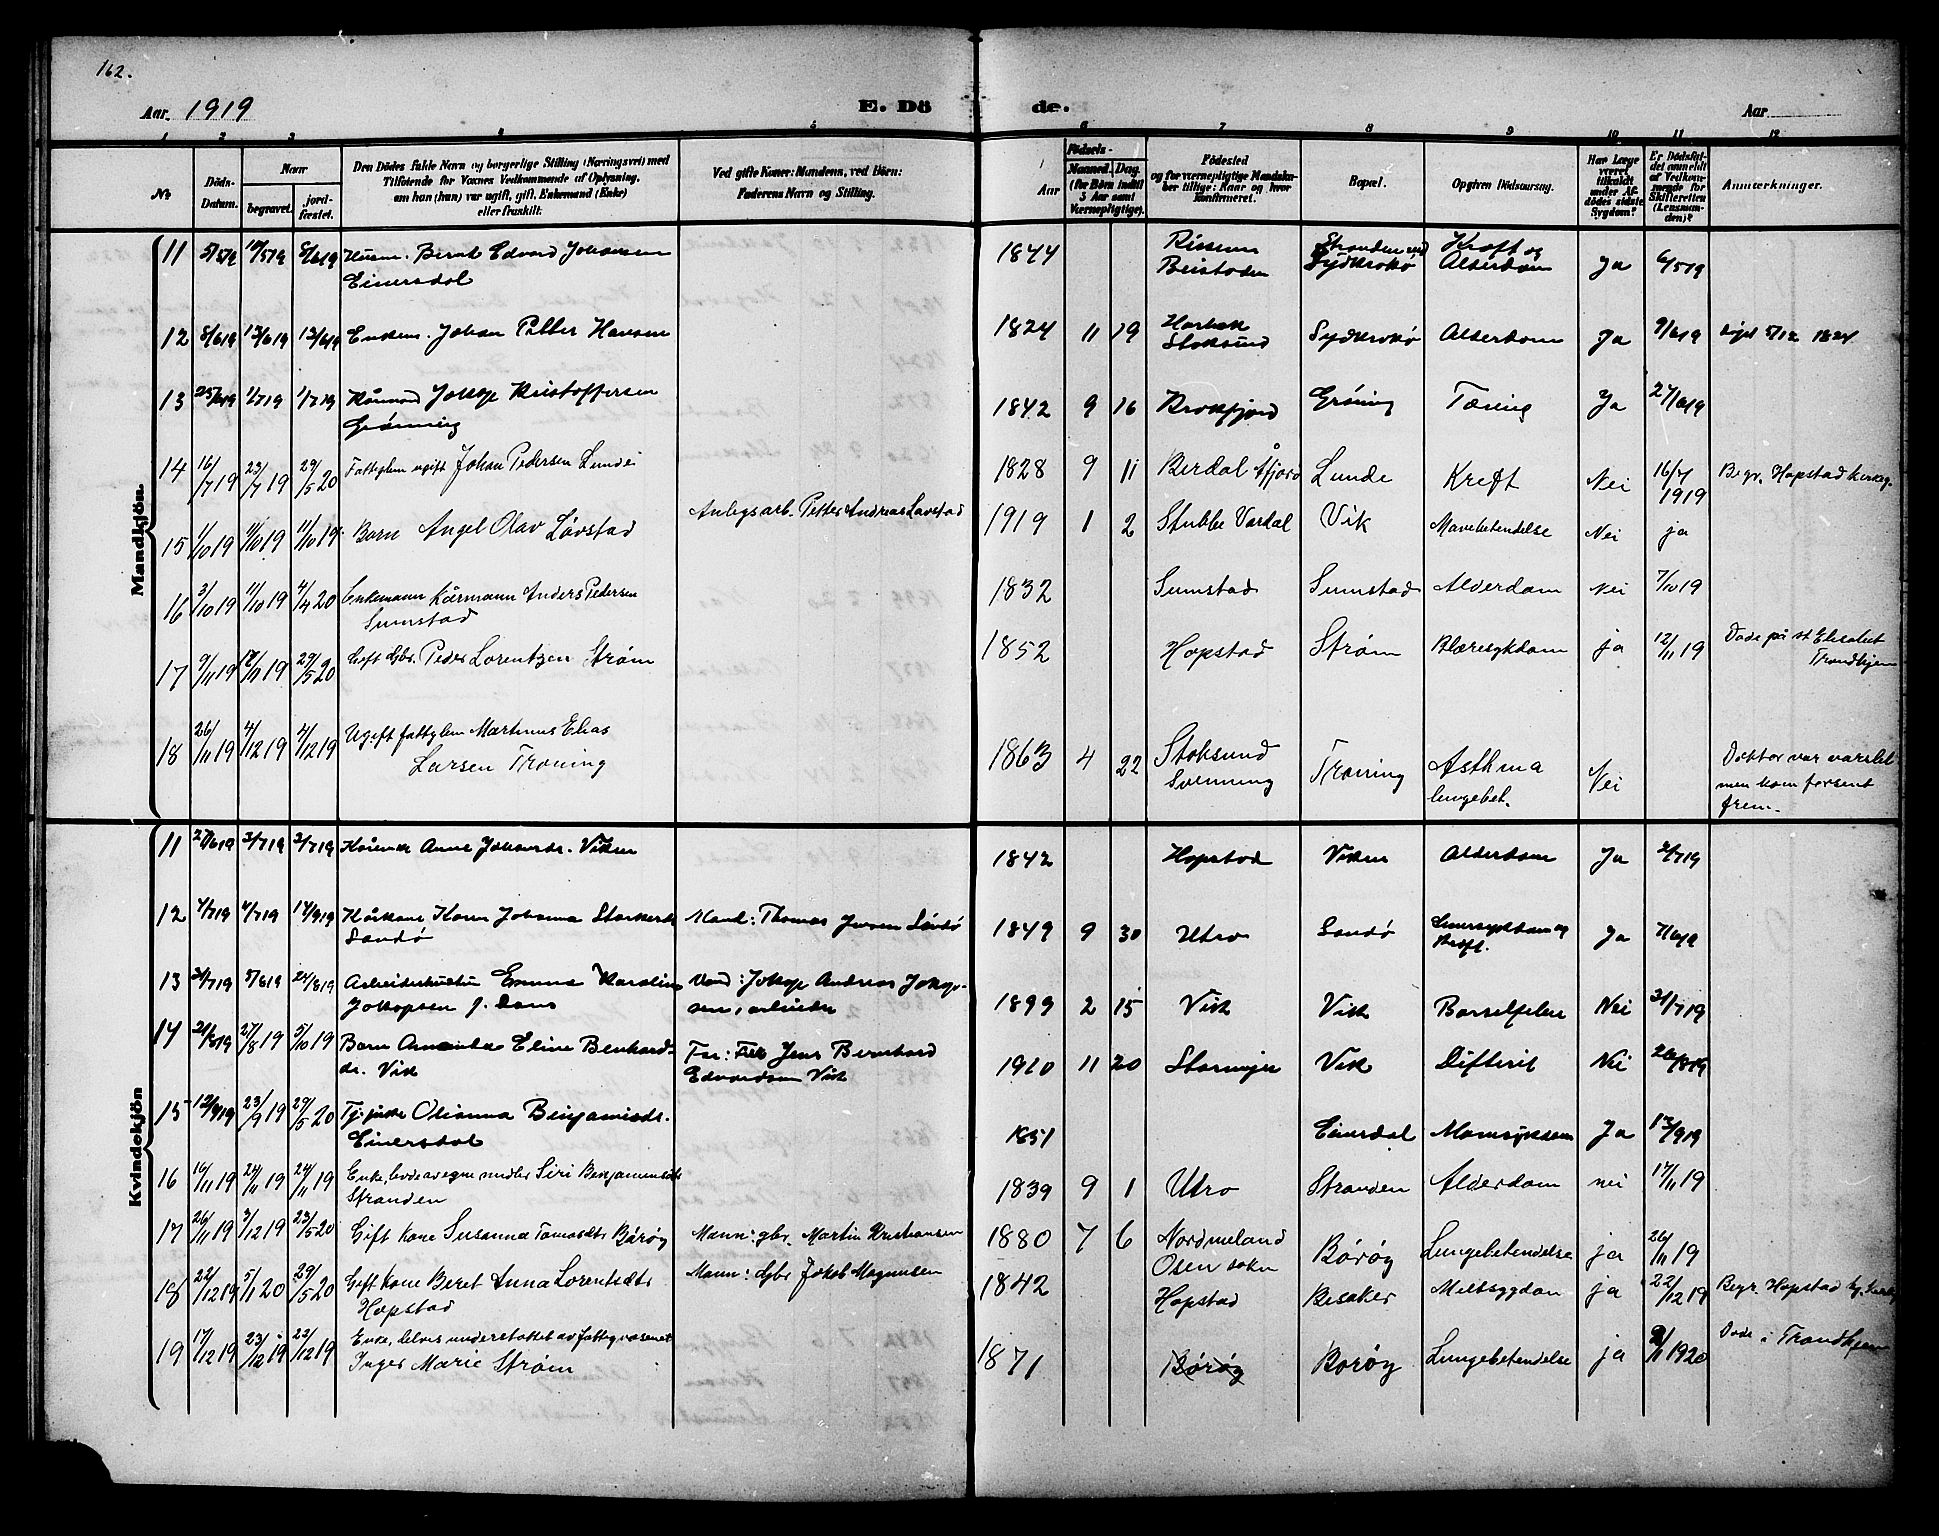 162.
Aar. 1919
E. Dö de.
Aar
1 2 3 4 5 6 7 8 9 10 11 12
№
Döds-Datum.
Naar
begravet.
jord-fæstet.
Den Dödes fulde Navn og borgerlige Stilling (Næringsvei) med
Tilföiende for Voxnes Vedkommende af Oplysning,
om han (hun) var ugift, gift, Enkemand (Enke)
eller fraskilt.
Ved gifte Koner: Mandens, ved Börn:
Faderens Navn og Stilling.
Aar
Födsels-
Maaned. Dag.
(for Börn indtil
5 Aar samt
Værnepligtige).
Födested
og for værnepligtige Mandska-
ber tillige: Naar og hvor
konfirmeret.
Bopæl.
Opgiven Dödsaarsag.
Har Læge
været
tilkaldt
under Af-
dödes sidste
Sygdom?
Er Dödsfal-
det anmeldt
af Vedkom-
mende for
Skifteretten
(Lensman-
den)?
Anmærkninger.
Mandkjön.
11 5/5 19 10/5 19 8/6 19 Husm. Bernt Edvard Johansen 1844 Rissum Stranden ved Kræft og Ja 6/5 19
Einersdal Beistaden Sydkrokø Alderdom
12 8/6 19 13/6 19 13/6 19 Enkem. Johan Petter Hansen 1824 11 19 Harbak Sydkrokø Alderdom Ja 9/6 19
Stoksund
13 25/6 19 1/7 19 1/7 19 Kårmand Jakop Kristoffersen 1842 9 16 Krokfjord Grøning Tæring Ja 27/6 19
Grønning
14 16/7 19 23/7 19 29/5 20 Fattiglem ugift Johan Pedersen Lunde 1828 9 11 Berdal Åfjord Lunde Kreft Nei 16/7 1919 Begr. Hopstad kirkeg.
15 1/10 19 11/10 19 11/10 19 Barn Angel Olav Løvstad Anlegsarb. Petter Andreas Lavstad 1919 1 2 Stubbe Vardal Vik Mavebetendelse Nei ja
16 3/10 19 11/10 19 4/4 20 Enkemann Kårmann Anders Pedersen 1832 Sumstad Sumstad Alderdom Nei 7/10 19
Sumstad
17 9/11 19 19 29/5 20 Gift Gbr. Peder Lorentzen Strøm 1852 Hopstad Strøm Blæresykdom ja 12/11 19 Døde på st Elisabet
Trondhjem
18 26/11 19 4/12 19 4/12 19 Ugift fattiglem Martinus Elias 1863 4 22 Stoksund Trøning Asthma Nei Doktor var varslet
Larsen Trøning Svenning lungebet. men kom forsent
frem.
Kvindekjön
11 27/6 19 3/7 19 3/7 19 Kårenke Anne Johansdr. Viken 1842 Hopstad Viken Alderdom Ja 2/7 19
12 4/7 19 4/7 19 14/9 19 Kårkone Karen Johanna Mand: Thomas Jensen Sandø 1849 9 30 Utro Sandø Leversykdom og Ja 7/6 19
Sandø Kræft.
13 31/7 19 5/8 19 24/8 19 Arbeiderhustru Emma Karoline Mand: Jakop Andreas Jakop- 1899 2 15 Vik Vik Barselfeber Nei 31/7 19
Jakopsen f. Dans sen, arbeider
14 21/8 19 27/8 19 5/10 19 Barn Amanda Eline Benhard- Far: Jens Bernhard 1910 11 20 Vik Difterit Nei 26/8 19
dr. Vik Edvardsen Vik
15 12/9 19 23/9 19 29/5 20 Olianna Benjaminsdr. 1851 Einersdal Ja 13/9 19
Einersdal
16 16/11 19 24/11 19 24/11 19 Enke, levde av egne midler Siri Benjaminsdtr 1839 9 1 Utro Stranden Alderdom nei 17/11 19
Stranden
17 26/11 19 3/12 19 23/5 20 Gift kone Susanna Tomasdtr Børøy Mann: gbr. Martin Kristiansen 1880 7 6 Nordmeland Børøy Lungebetendelse ja 26/11 19
Osen sokn
18 22/12 19 5/1 20 29/5 20 Gift kone Beret Anna Lorentsdtr Mann: Gbr Jakob Magnussen 1842 Hopstad Besaker Miltsygdom ja 22/12 19 Begr. Hopstad
Hopstad
19 17/12 19 23/12 19 23/12 19 Enke, delvis understøttet av fattigvæsenet 1871 Børøy Borøy Lungebetendelse ja 1920 Døde i Trondhjem
Inger Marie Strøm